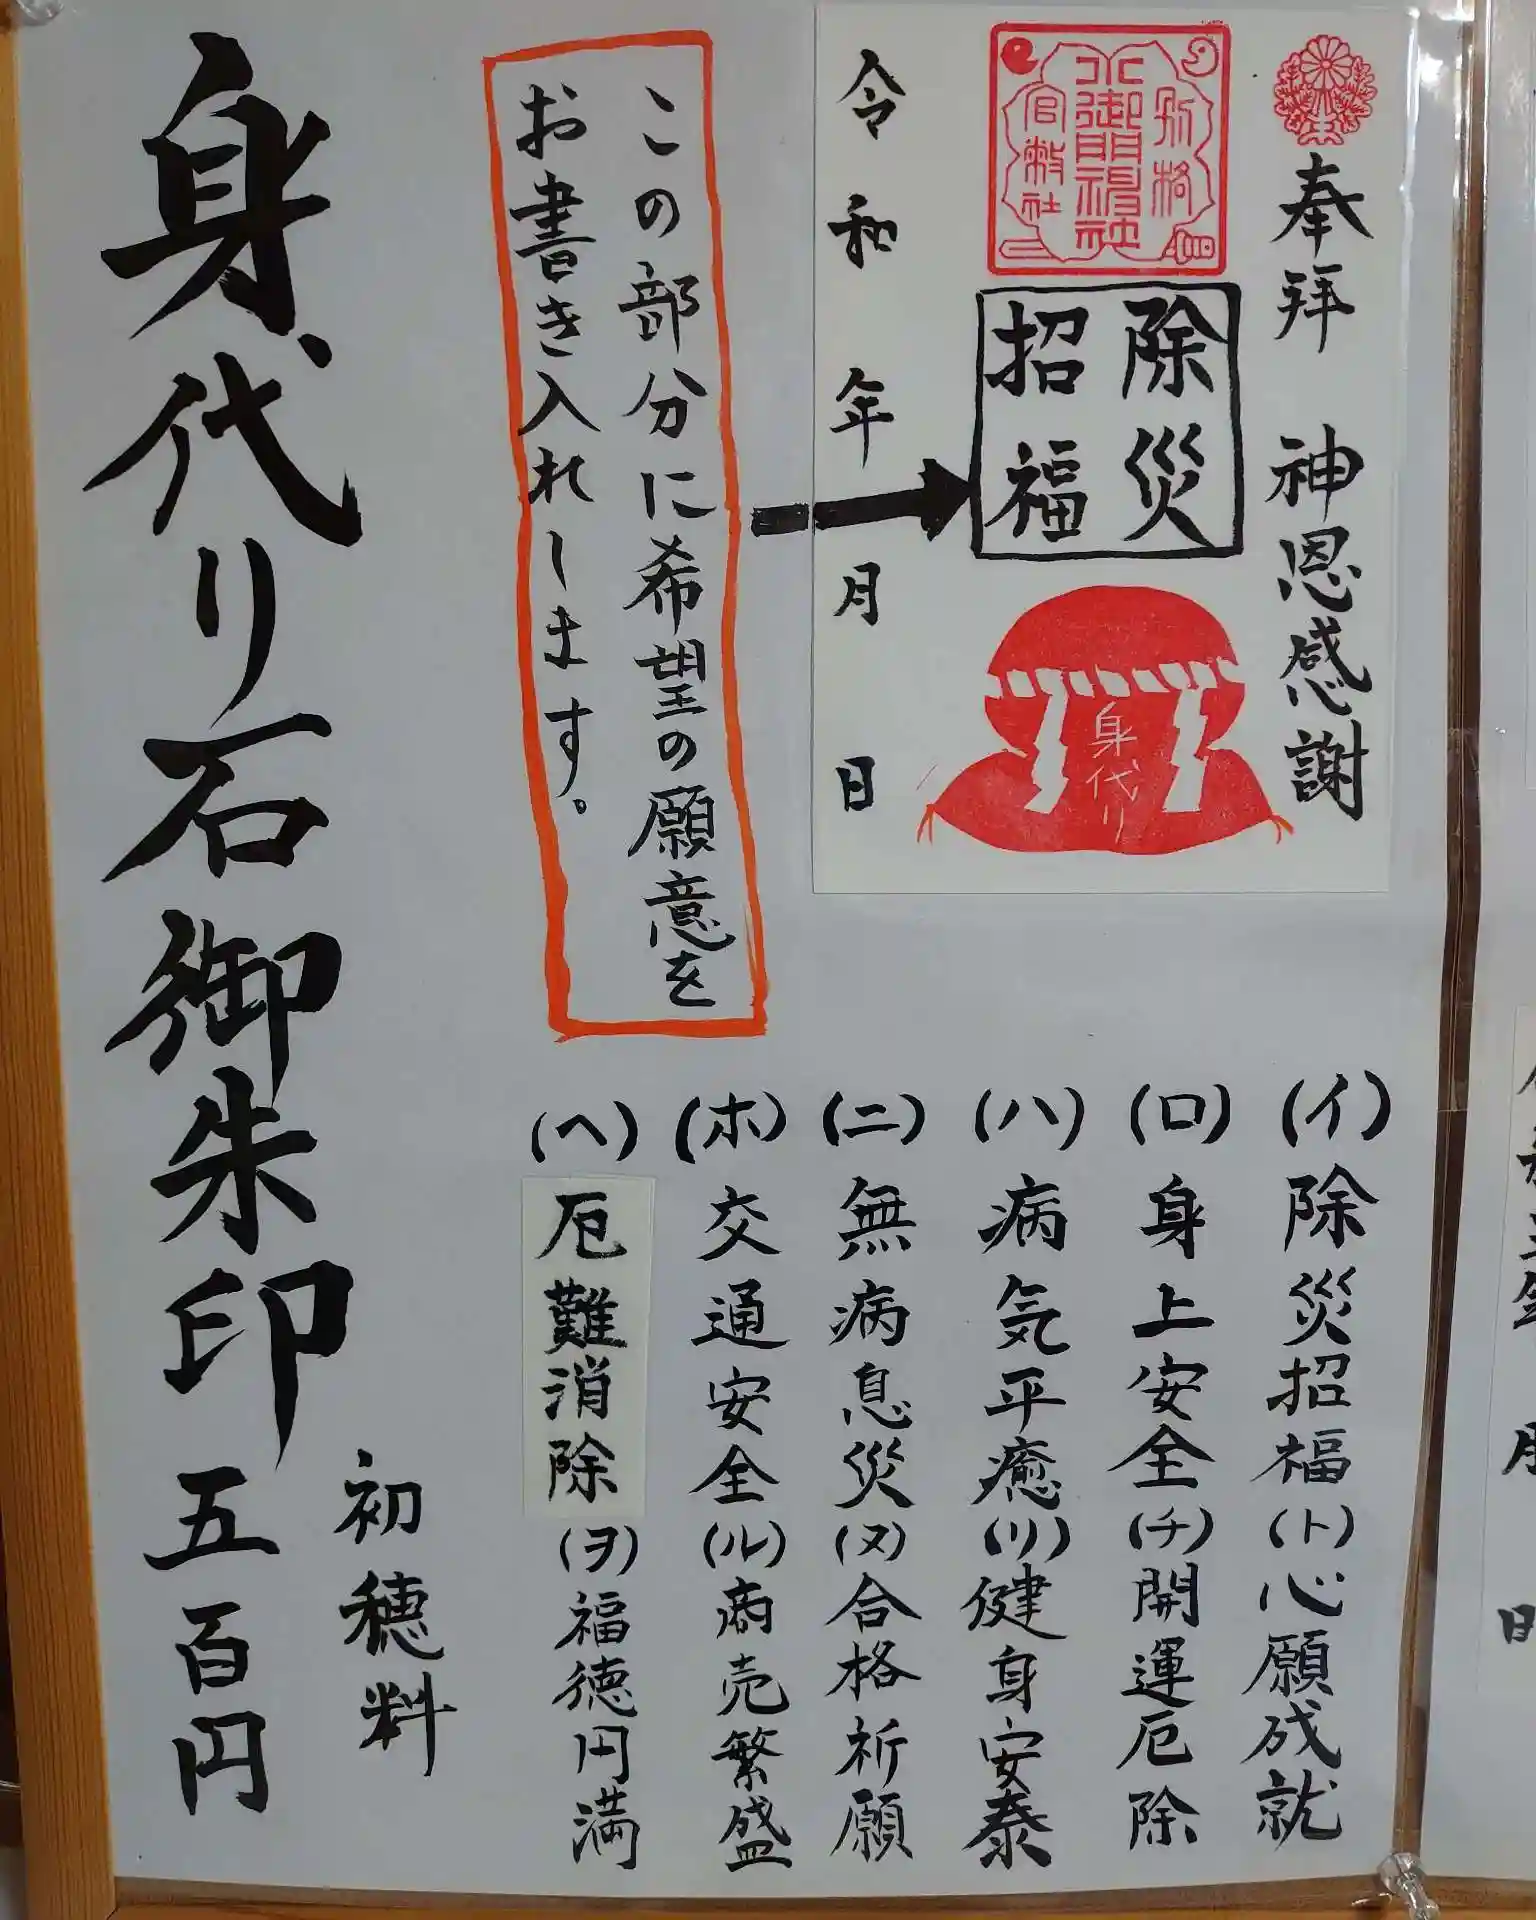 奉拝　神恩感謝
別格
小御門神社
官幣社
除災
招福
身代り
令和　年　月　日
この部分に希望の願意を
お書き入れします。
(イ)除災招福
(ロ)身上安全
(ハ)病気平癒
(ニ)無病息災
(ホ)交通安全
(ヘ)厄難消除
(ト)心願成就
(チ)開運厄除
(リ)健身安泰
(ヌ)合格祈願
(ル)商売繁盛
(ヲ)福徳円満
身代り石御朱印
初穂料
五百円
月
日